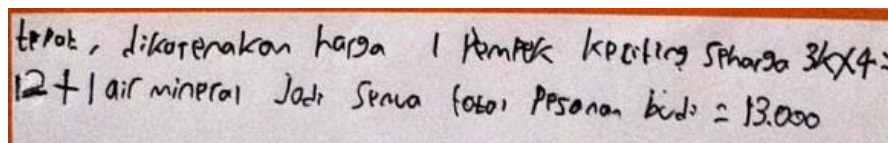 tepat, dikarenakan harga 1 Pempek keriting seharga 3k×4=
12+1 air mineral Jadi semua total Pesanan budi = 13.000